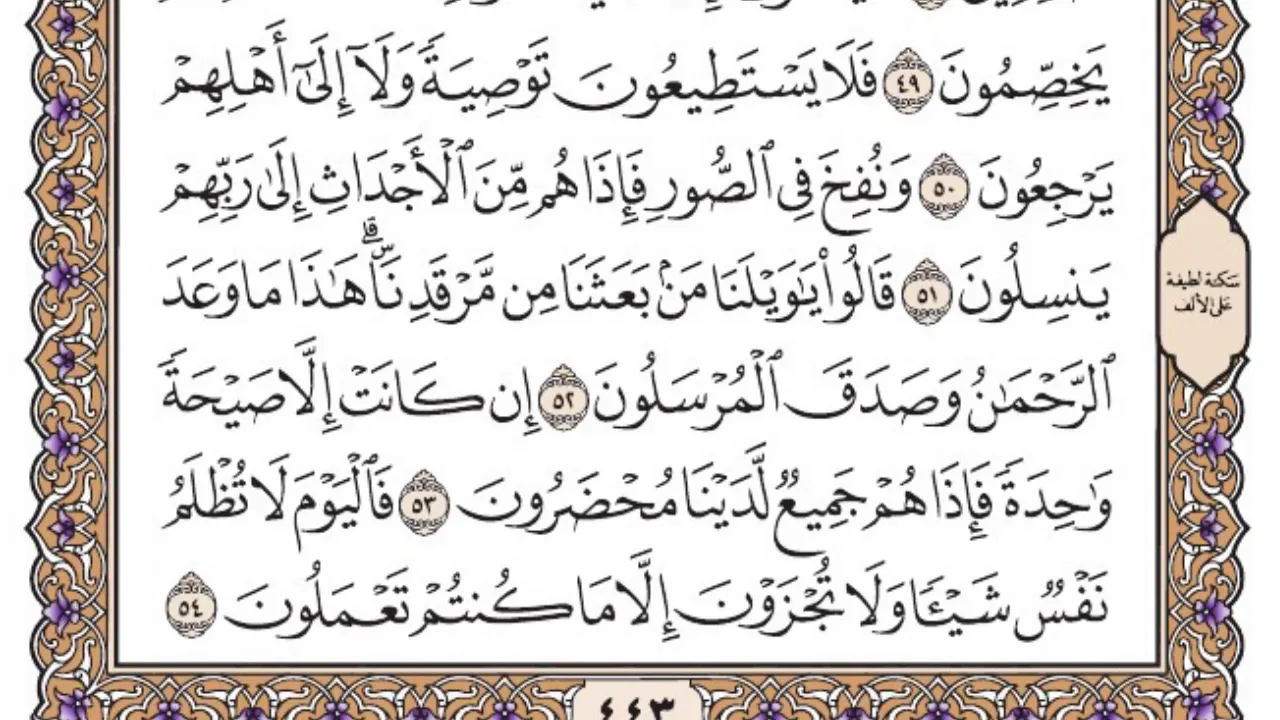 يَخِصِّمُونَ ٤٩ فَلَا يَسۡتَطِيعُونَ تَوۡصِيَةٗ وَلَآ إِلَىٰٓ أَهۡلِهِمۡ
يَرۡجِعُونَ ٥٠ وَنُفِخَ فِي ٱلصُّورِ فَإِذَا هُم مِّنَ ٱلۡأَجۡدَاثِ إِلَىٰ رَبِّهِمۡ
يَنسِلُونَ ٥١ قَالُواْ يَٰوَيۡلَنَا مَنۢ بَعَثَنَا مِن مَّرۡقَدِنَاۜۗ هَٰذَا مَا وَعَدَ
ٱلرَّحۡمَٰنُ وَصَدَقَ ٱلۡمُرۡسَلُونَ ٥٢ إِن كَانَتۡ إِلَّا صَيۡحَةٗ
وَٰحِدَةٗ فَإِذَا هُمۡ جَمِيعٞ لَّدَيۡنَا مُحۡضَرُونَ ٥٣ فَٱلۡيَوۡمَ لَا تُظۡلَمُ
نَفۡسٞ شَيۡـٔٗا وَلَا تُجۡزَوۡنَ إِلَّا مَا كُنتُمۡ تَعۡمَلُونَ ٥٤
سَكتة لطيفة
عَلى الألف
٤٤٣